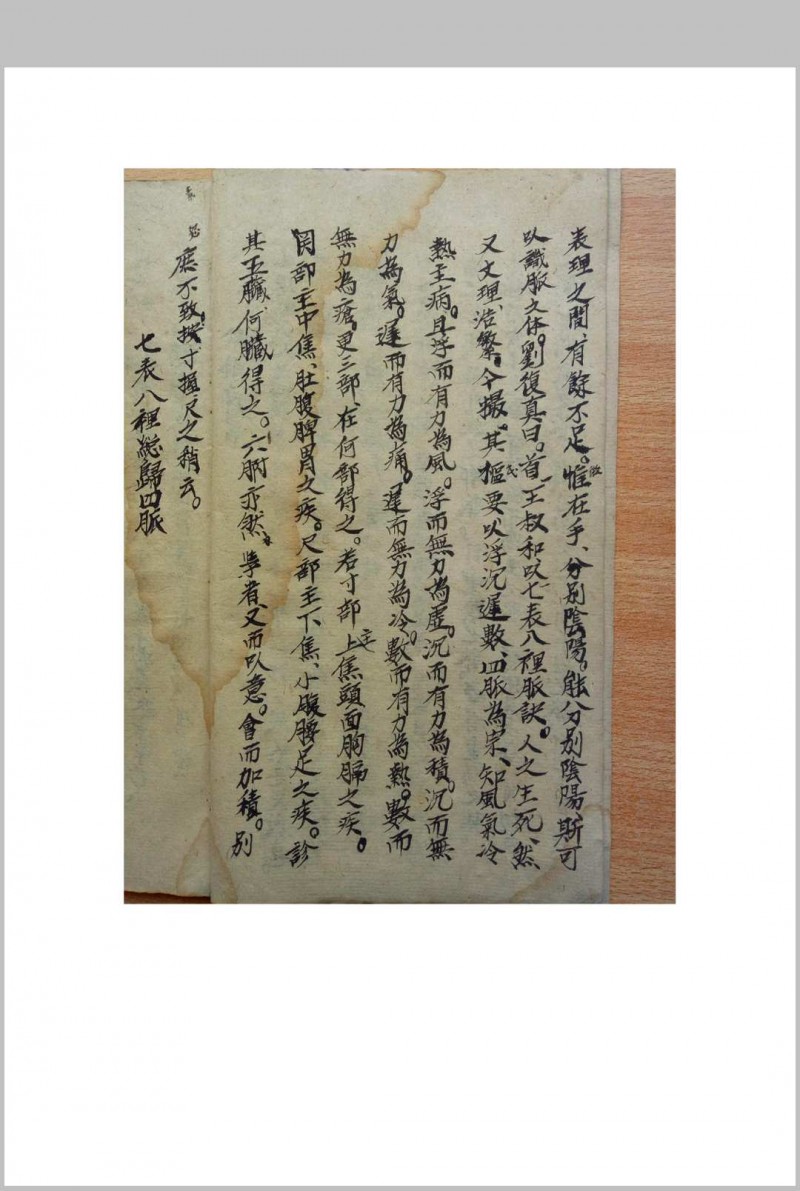 表理之間、有餘不足。惟在手、分别陰陽。能分别陰陽、斯可
以識脈之体。劉復真曰。首王叔和以七表八裡脈訣。人之生死、然
又文理、浩繁。今撮。其樞要以浮沉遲數、四脈為宗、知風氣冷
熱主病。且浮而有力為風。浮而無力為虛。沉而有力為積。沉而無
力為氣。遲而有力為痛。遲而無力為冷。數而有力為熱。數而
無力為瘡。更三部、在何部得之。若寸部主上焦頭面胸膈之疾。
関部主中焦、肚腹脾胃之疾。尺部主下焦、小腹腰足之疾。診
其五臟、何臟得之。六腑亦然。學者、又而以意。會而加積。别
庶不致。按寸握尺之稍云。
七表八裡総歸四脈